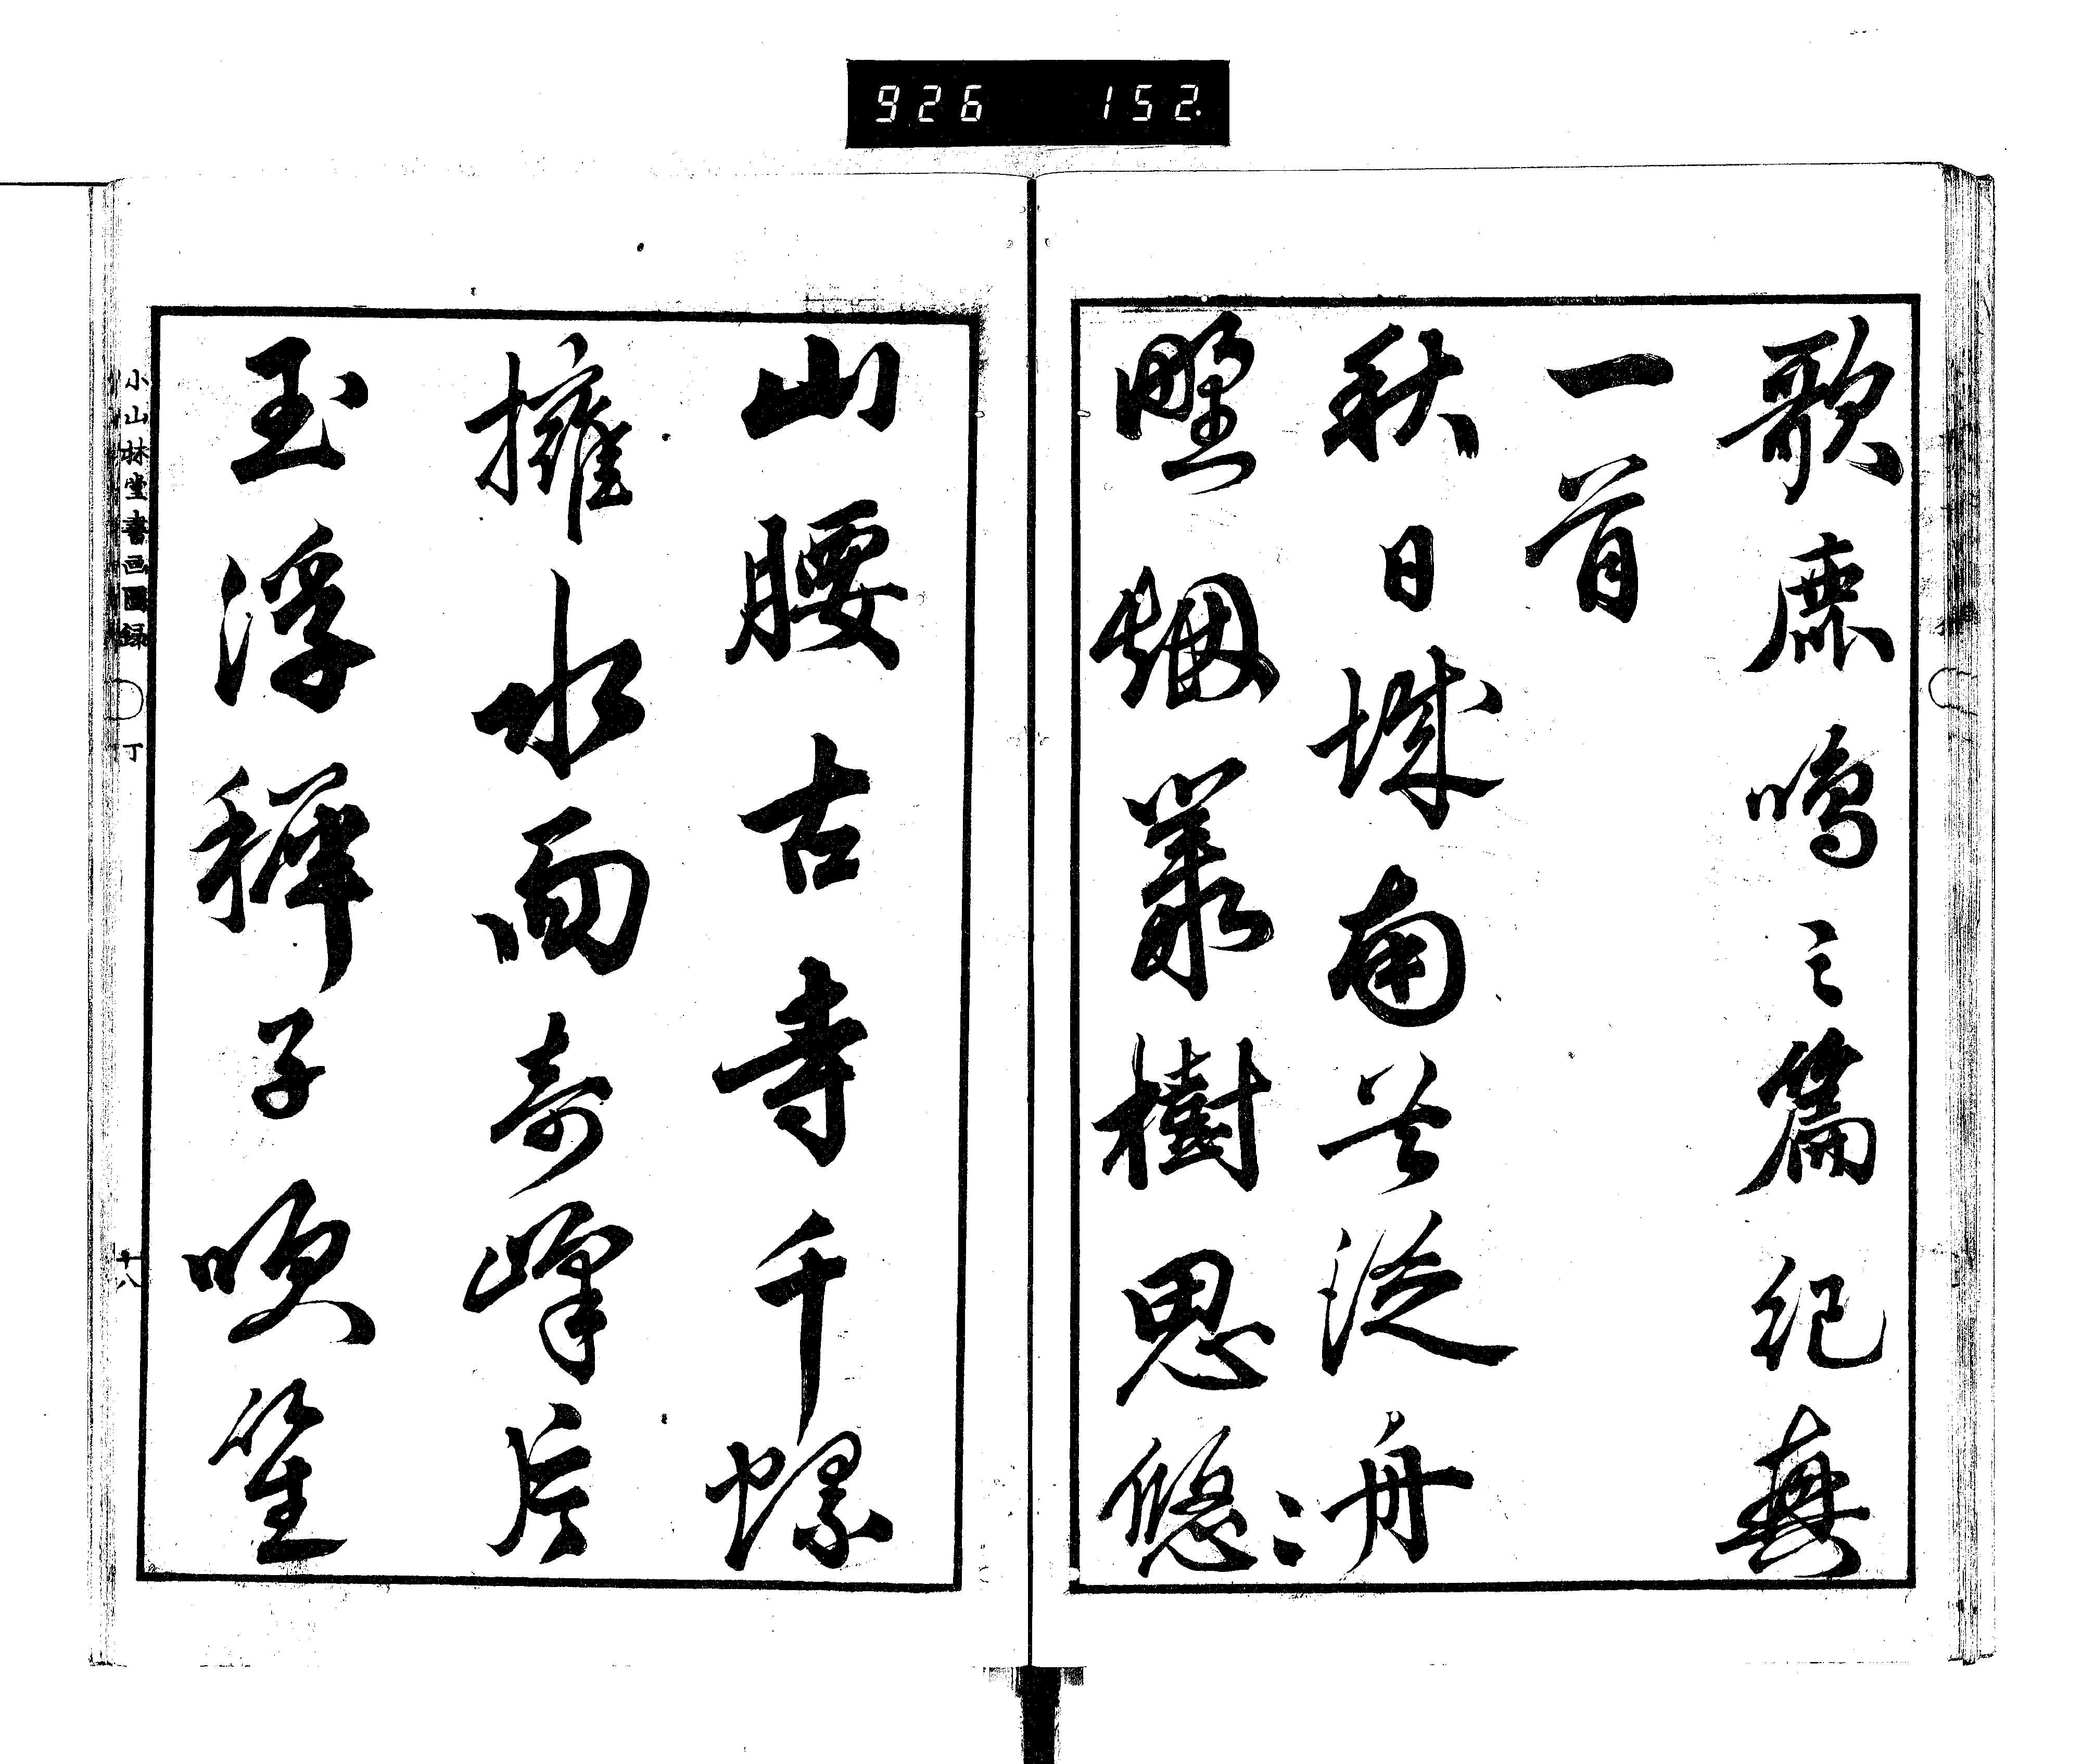 926 152
歌鹿鳴之篇紀
一首
秋日城南共泛舟
野烟叢樹思悠〻
山腰古寺千螺
擁水面奇峰片
玉浮穉子吹笙
小山林堂書画圖録 丁 十八